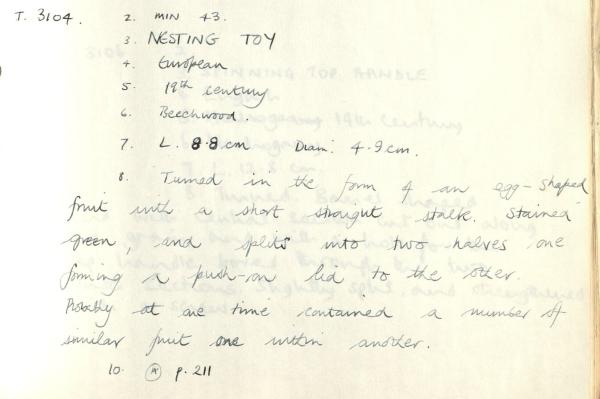 T. 3104. 2. MIN 43.
3. NESTING TOY
4. European
5. 19th century
6. Beechwood.
7. L. 8.8cm Diam: 4.9cm.
8. Turned in the form of an egg-shaped
fruit with a short straight stalk. Stained
green, and splits into two halves one
forming a push-on lid to the other.
Probably at one time contained a number of
similar fruit one within another.
10. (A) p. 211